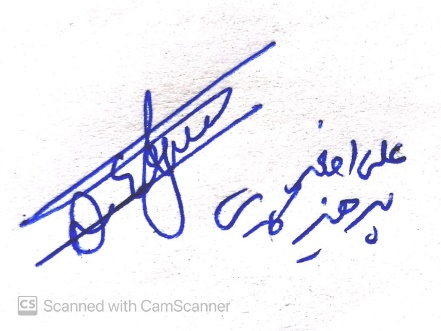 علی اصغر
پرهیزگاری
CS Scanned with CamScanner